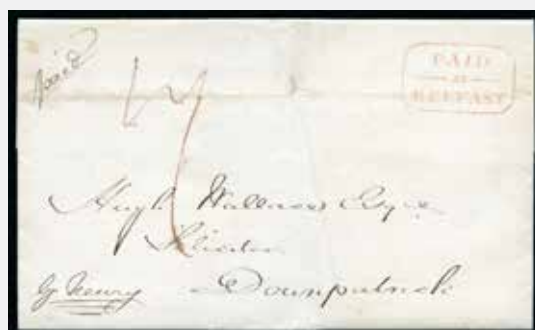 Paid
PAID
AT
BELFAST
Hugh Wallace Esqre
Solicitor
Downpatrick
By Newry